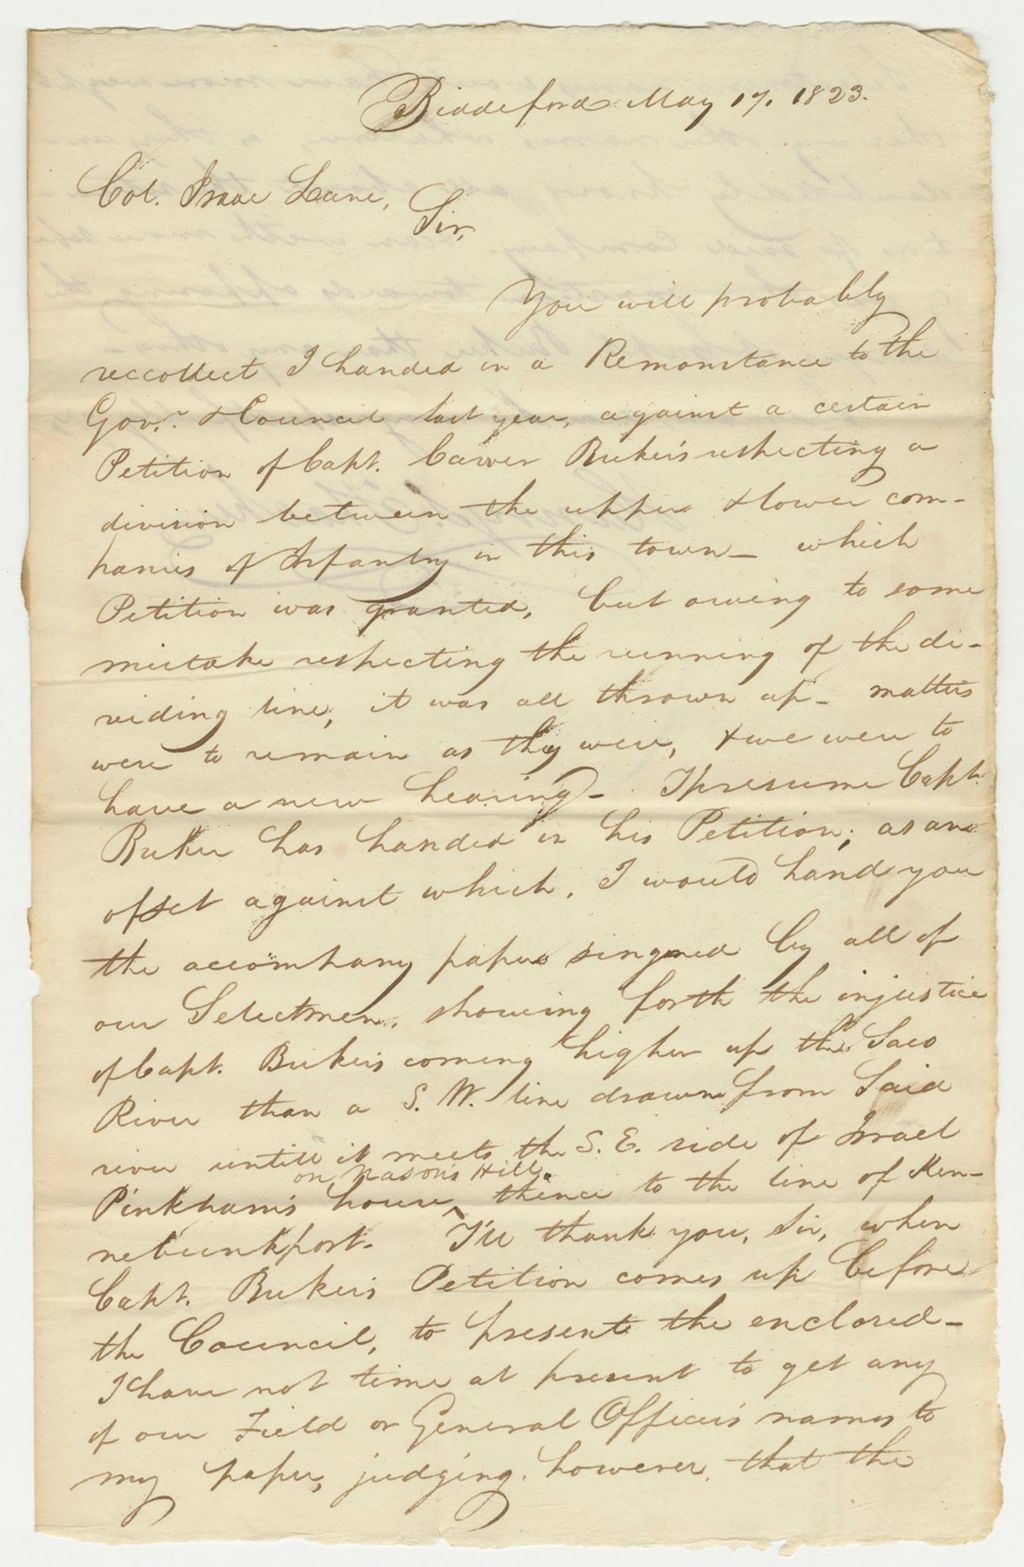 Biddeford May 17. 1823.
Col. Isaac Lane,
Sir,
You will probably
reccollect I handed in a Remonstance to the
Govr. & Council last year, against a certain
Petition of Capt. Buker's respecting a
division between the upper & lower com-
panies of Infantry in this town — which
Petition was granted, but owing to some
mistake respecting the running of the di-
viding line, it was all thrown up — matters
were to remain as they were, & we were to
have a new hearing — I presume Capt.
Buker has handed in his Petition; as an
offset against which, I would hand you
the accompany papers singned by all of
our Selectmen, showing forth the injustice
of Capt. Buker's coming higher up the Saco
River than a S. W. line drawn from Said
river untill it meets the S. E. side of Israel
on Nason's Hill,
Pinkham's house, thence to the line of Ken-
nebunkport. I'll thank you, Sir, when
Capt. Buker's Petition comes up before
the Council, to present the enclosed —
I have not time at present to get any
of our Field or General Officer's names to
my paper, judging, however, that the